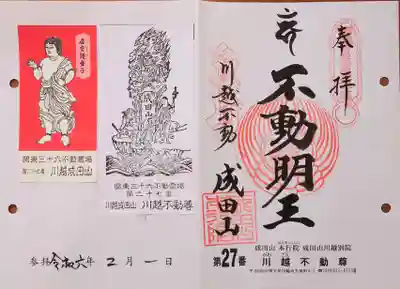 奉拝
不動明王
川越不動
成田山
第27番
成田山 本行院 成田山川越別院
川越不動尊
成田山
関東三十六不動霊場
川越成田山
関東三十六不動霊場
第二十七番
川越不動尊
参拝 令和六年 2月 1日